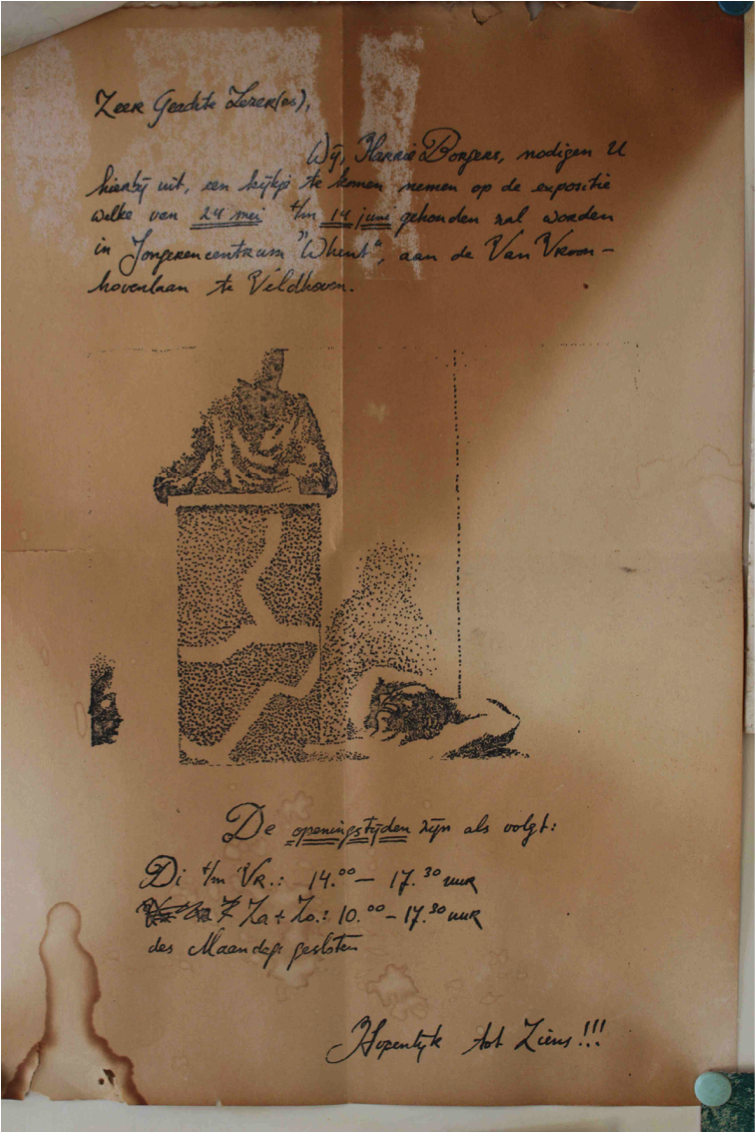 Zeer Geachte Lezer(es),
Wij, Harrie Borgers, nodigen U
hierbij uit, een kijkje te komen nemen op de expositie
welke van 24 mei t/m 14 juni gehouden zal worden
in Jongerencentrum "Whent", aan de Van Vroon-
hovenlaan te Veldhoven.
De openingstijden zijn als volgt:
Di t/m Vr.: 14.00 — 17.30 uur
Za + Zo.: 10.00 – 17.30 uur
des Maandags gesloten
Hopenlijk tot Ziens!!!